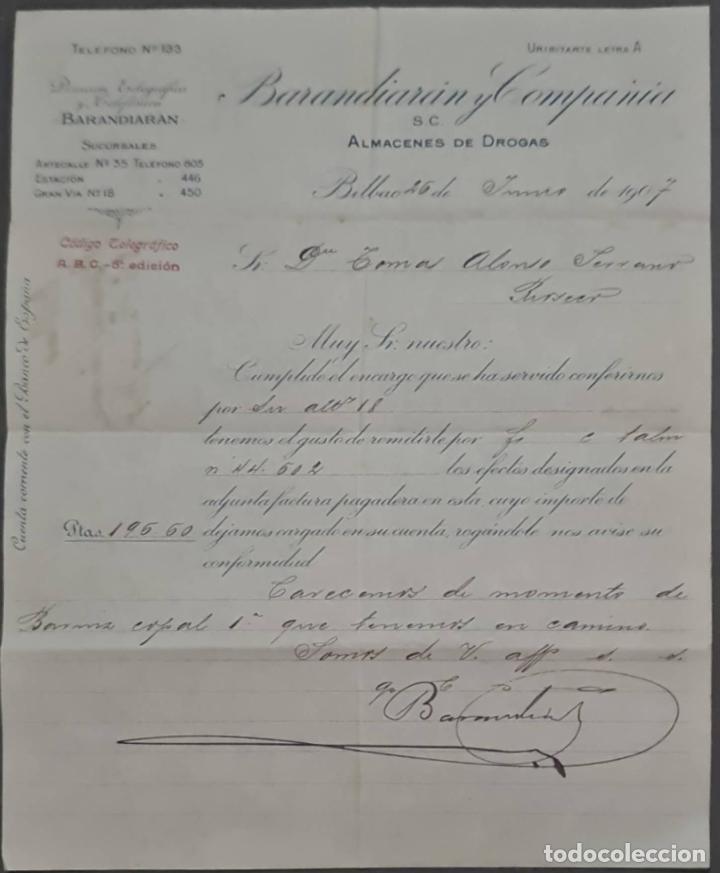 TELÉFONO Nº 133
URIBITARTE LETRA A
Dirección Telegráfica
y Telefónica
BARANDIARÁN
Barandiarán y Compañía
S.C.
ALMACENES DE DROGAS
SUCURSALES
ARTECALLE Nº 35 TELÉFONO 805
ESTACIÓN " 446
GRAN VIA Nº 18 " 450
Bilbao 26 de Junio de 1907
Código Telegráfico
A.B.C.-5ª edición
Sr. Dn Tomas Alonso Serrano
Cuenta corriente con el Banco de España
Muy Sr. nuestro:
Cumplido el encargo que se ha servido conferirnos
por su att° 18
tenemos el gusto de remitirle por f. c talon
nº 44.602 los efectos designados en la
adjunta factura pagadera en esta, cuyo importe de
Ptas. 196.60 dejamos cargado en su cuenta, rogándole nos avise su
conformidad
Carecemos de momento de
Barniz copal 1ª que tenemos en camino.
Somos de V. aff s. s.
todocoleccion
todocoleccion.net